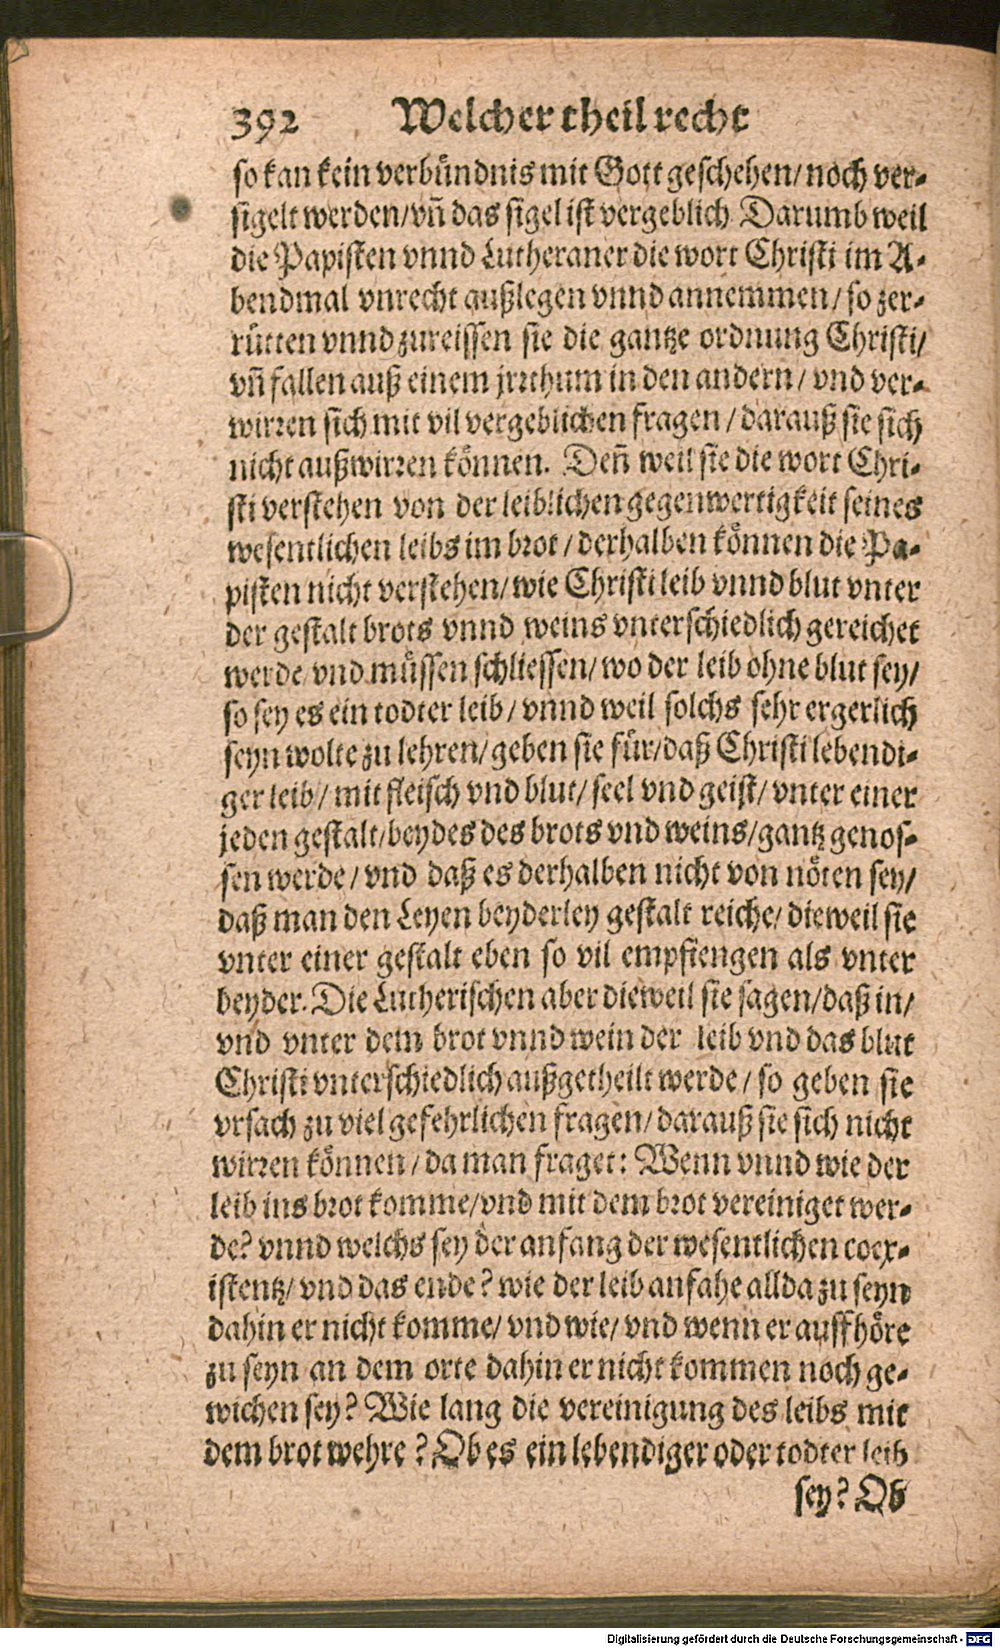 392 Welcher theil recht
so kan kein verbündnis mit Gott geschehen/ noch ver-
sigelt werden/ vñ das sigel ist vergeblich Darumb weil
die Papisten vnnd Lutheraner die wort Christi im A-
bendmal vnrecht außlegen vnnd annemmen/ so zer-
rütten vnnd zureissen sie die gantze ordnung Christi/
vñ fallen auß einem jrrthum in den andern/ vnd ver-
wirren sich mit vil vergeblichen fragen/ darauß sie sich
nicht außwirren können. Deñ weil sie die wort Chri-
sti verstehen von der leiblichen gegenwertigkeit seines
wesentlichen leibs im brot/ derhalben können die Pa-
pisten nicht verstehen/ wie Christi leib vnnd blut vnter
der gestalt brots vnnd weins vnterschiedlich gereichet
werde/ vnd müssen schliessen/ wo der leib ohne blut sey/
so sey es ein todter leib/ vnnd weil solchs sehr ergerlich
seyn wolte zu lehren/ geben sie für/ daß Christi lebendi-
ger leib/ mit fleisch vnd blut/ seel vnd geist/ vnter einer
jeden gestalt/ beydes des brots vnd weins/ gantz genos-
sen werde/ vnd daß es derhalben nicht von nöten sey/
daß man den Leyen beyderley gestalt reiche/ dieweil sie
vnter einer gestalt eben so vil empfiengen als vnter
beyder. Die Lutherischen aber dieweil sie sagen/ daß in/
vnd vnter dem brot vnnd wein der leib vnd das blut
Christi vnterschiedlich außgetheilt werde/ so geben sie
vrsach zu viel gefehrlichen fragen/ darauß sie sich nicht
wirren können/ da man fraget: Wenn vnnd wie der
leib ins brot komme/ vnd mit dem brot vereiniget wer-
de? vnnd welchs sey der anfang der wesentlichen coex-
istentz/ vnd das ende? wie der leib anfahe allda zu seyn
dahin er nicht komme/ vnd wie/ vnd wenn er auffhöre
zu seyn an dem orte dahin er nicht kommen noch ge-
wichen sey? Wie lang die vereinigung des leibs mit
dem brot wehre? Ob es ein lebendiger oder todter leib
sey? Ob
Digitalisierung gefördert durch die Deutsche Forschungsgemeinschaft - DFG